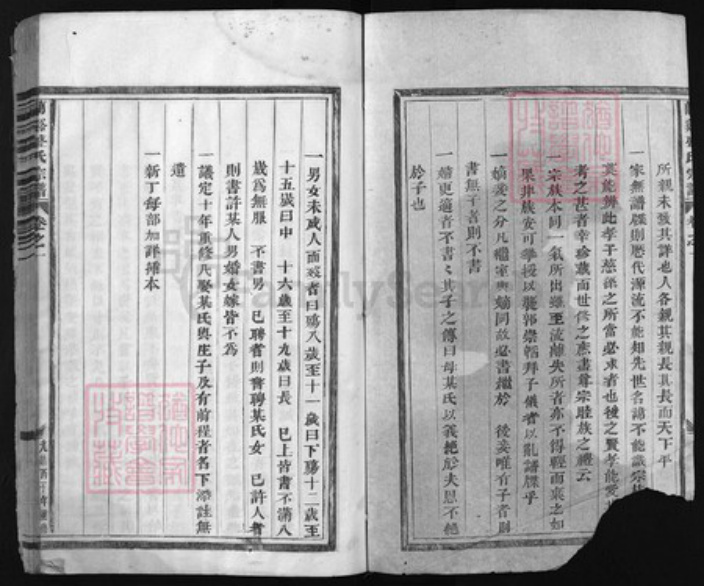 所親未致其詳也人各親其親長其長而天下平
一家無譜牒則歷代源流不能知先世名諱不能識宗
莫能辨此孝子慈孫之所當必求者也後之賢孝能愛
考之甚者幸珍藏而世保之庶盡尊宗睦族之禮云
一宗族本同一氣所出雖至流離失所者亦不得輕而棄之如
果非族安可學授以襲郭崇韜拜子儀者以亂譜牒乎
一嫡妾之分凡繼室與嫡同故必書繼於 後妾唯有子者則
書無子者則不書
一婚更適者不書書其子之傳曰母某氏以義絕於夫恩不絕
於子也
一男女未成人而喪者曰殤八歲至十一歲曰下殤十二歲至
十五歲曰中 十六歲至十九歲曰長 已上皆書不滿八
歲為無服 不書男 已聘者則書聘某氏女 已許人者
則書許某人男婚女嫁皆不為
一議定十年重修凡娶某氏與庄子及有前程者名下添註無
遺
一新丁每部加詳雜本
氏宗譜
卷之一
FamilySearch